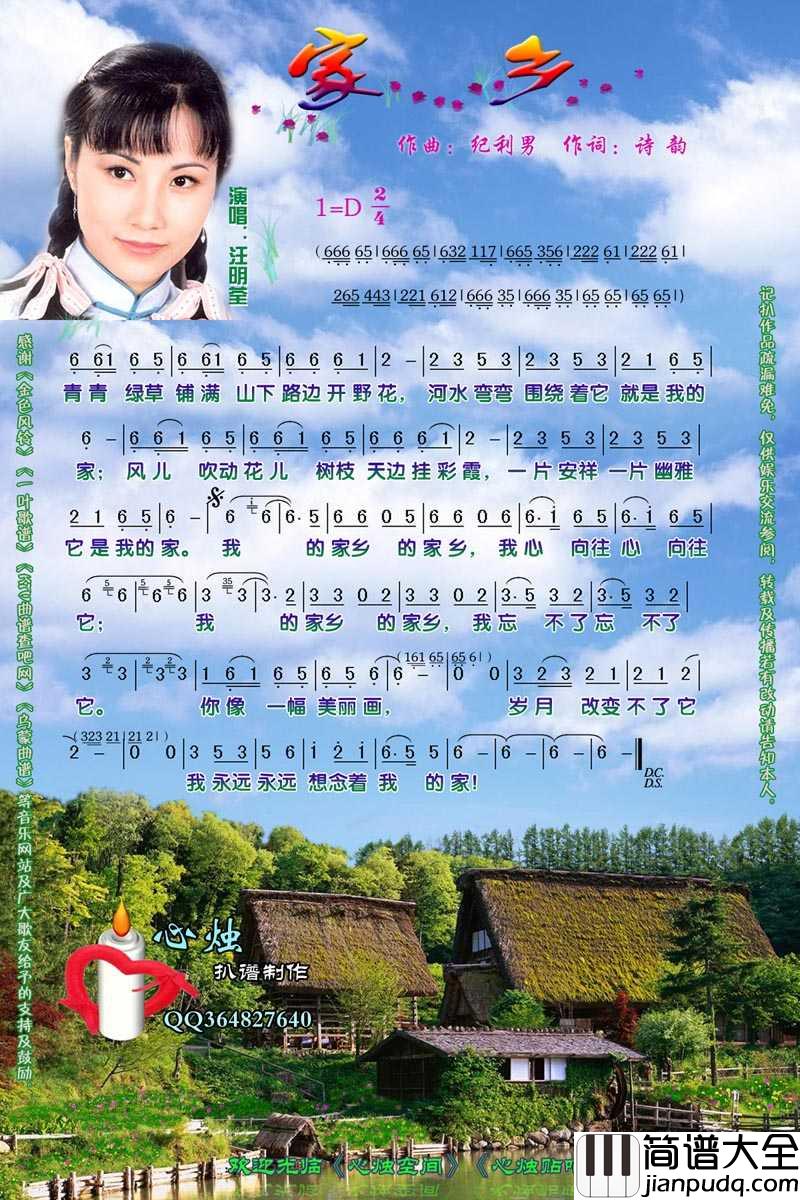 家乡
作曲：纪利男 作词：诗韵
演唱：汪明荃
1=D 2/4
(666 65|666 65|632 117|665 356|222 61|222 61|
265 443|221 612|666 35|666 35|65 65|65 65|)
6 61 6 5|6 61 6 5|6 6 6 1|2 -|2 3 5 3|2 3 5 3|2 1 6 5|
青青 绿草 铺满 山下 路边 开野花， 河水 弯弯 围绕 着它 就是 我的
6 -|6 6 1 6 5|6 6 1 6 5|6 6 6 1|2 -|2 3 5 3|2 3 5 3|
家； 风儿 吹动 花儿 树枝 天边 挂彩霞， 一片 安祥 一片 幽雅
2 1 6 5|6 -|
它是 我的 家。 我 的家乡 的家乡， 我心 向往 心 向往
它； 我 的家乡 的家乡， 我忘 不了 忘 不了
它。 你像 一幅 美丽画， 岁月 改变 不了它
2 -|0 0|3 5 5 3|5 6|1 2 1|6· 5|6 -|6 -|6 -|6 -‖
D.C.
D.S.
我永远 永远 想念着 我 的家！
感谢《金色风铃》《一叶歌谱》《KTV曲谱查吧网》《乌蒙曲谱》等音乐网站及广大歌友给予的支持及鼓励
记扒作品疏漏难免，仅供娱乐交流参阅，转载及传播若有改动请告知本人。
心烛
扒谱制作
QQ364827640
欢迎光临《心烛空间》《心烛贴吧
简谱大全
jianpudq.com